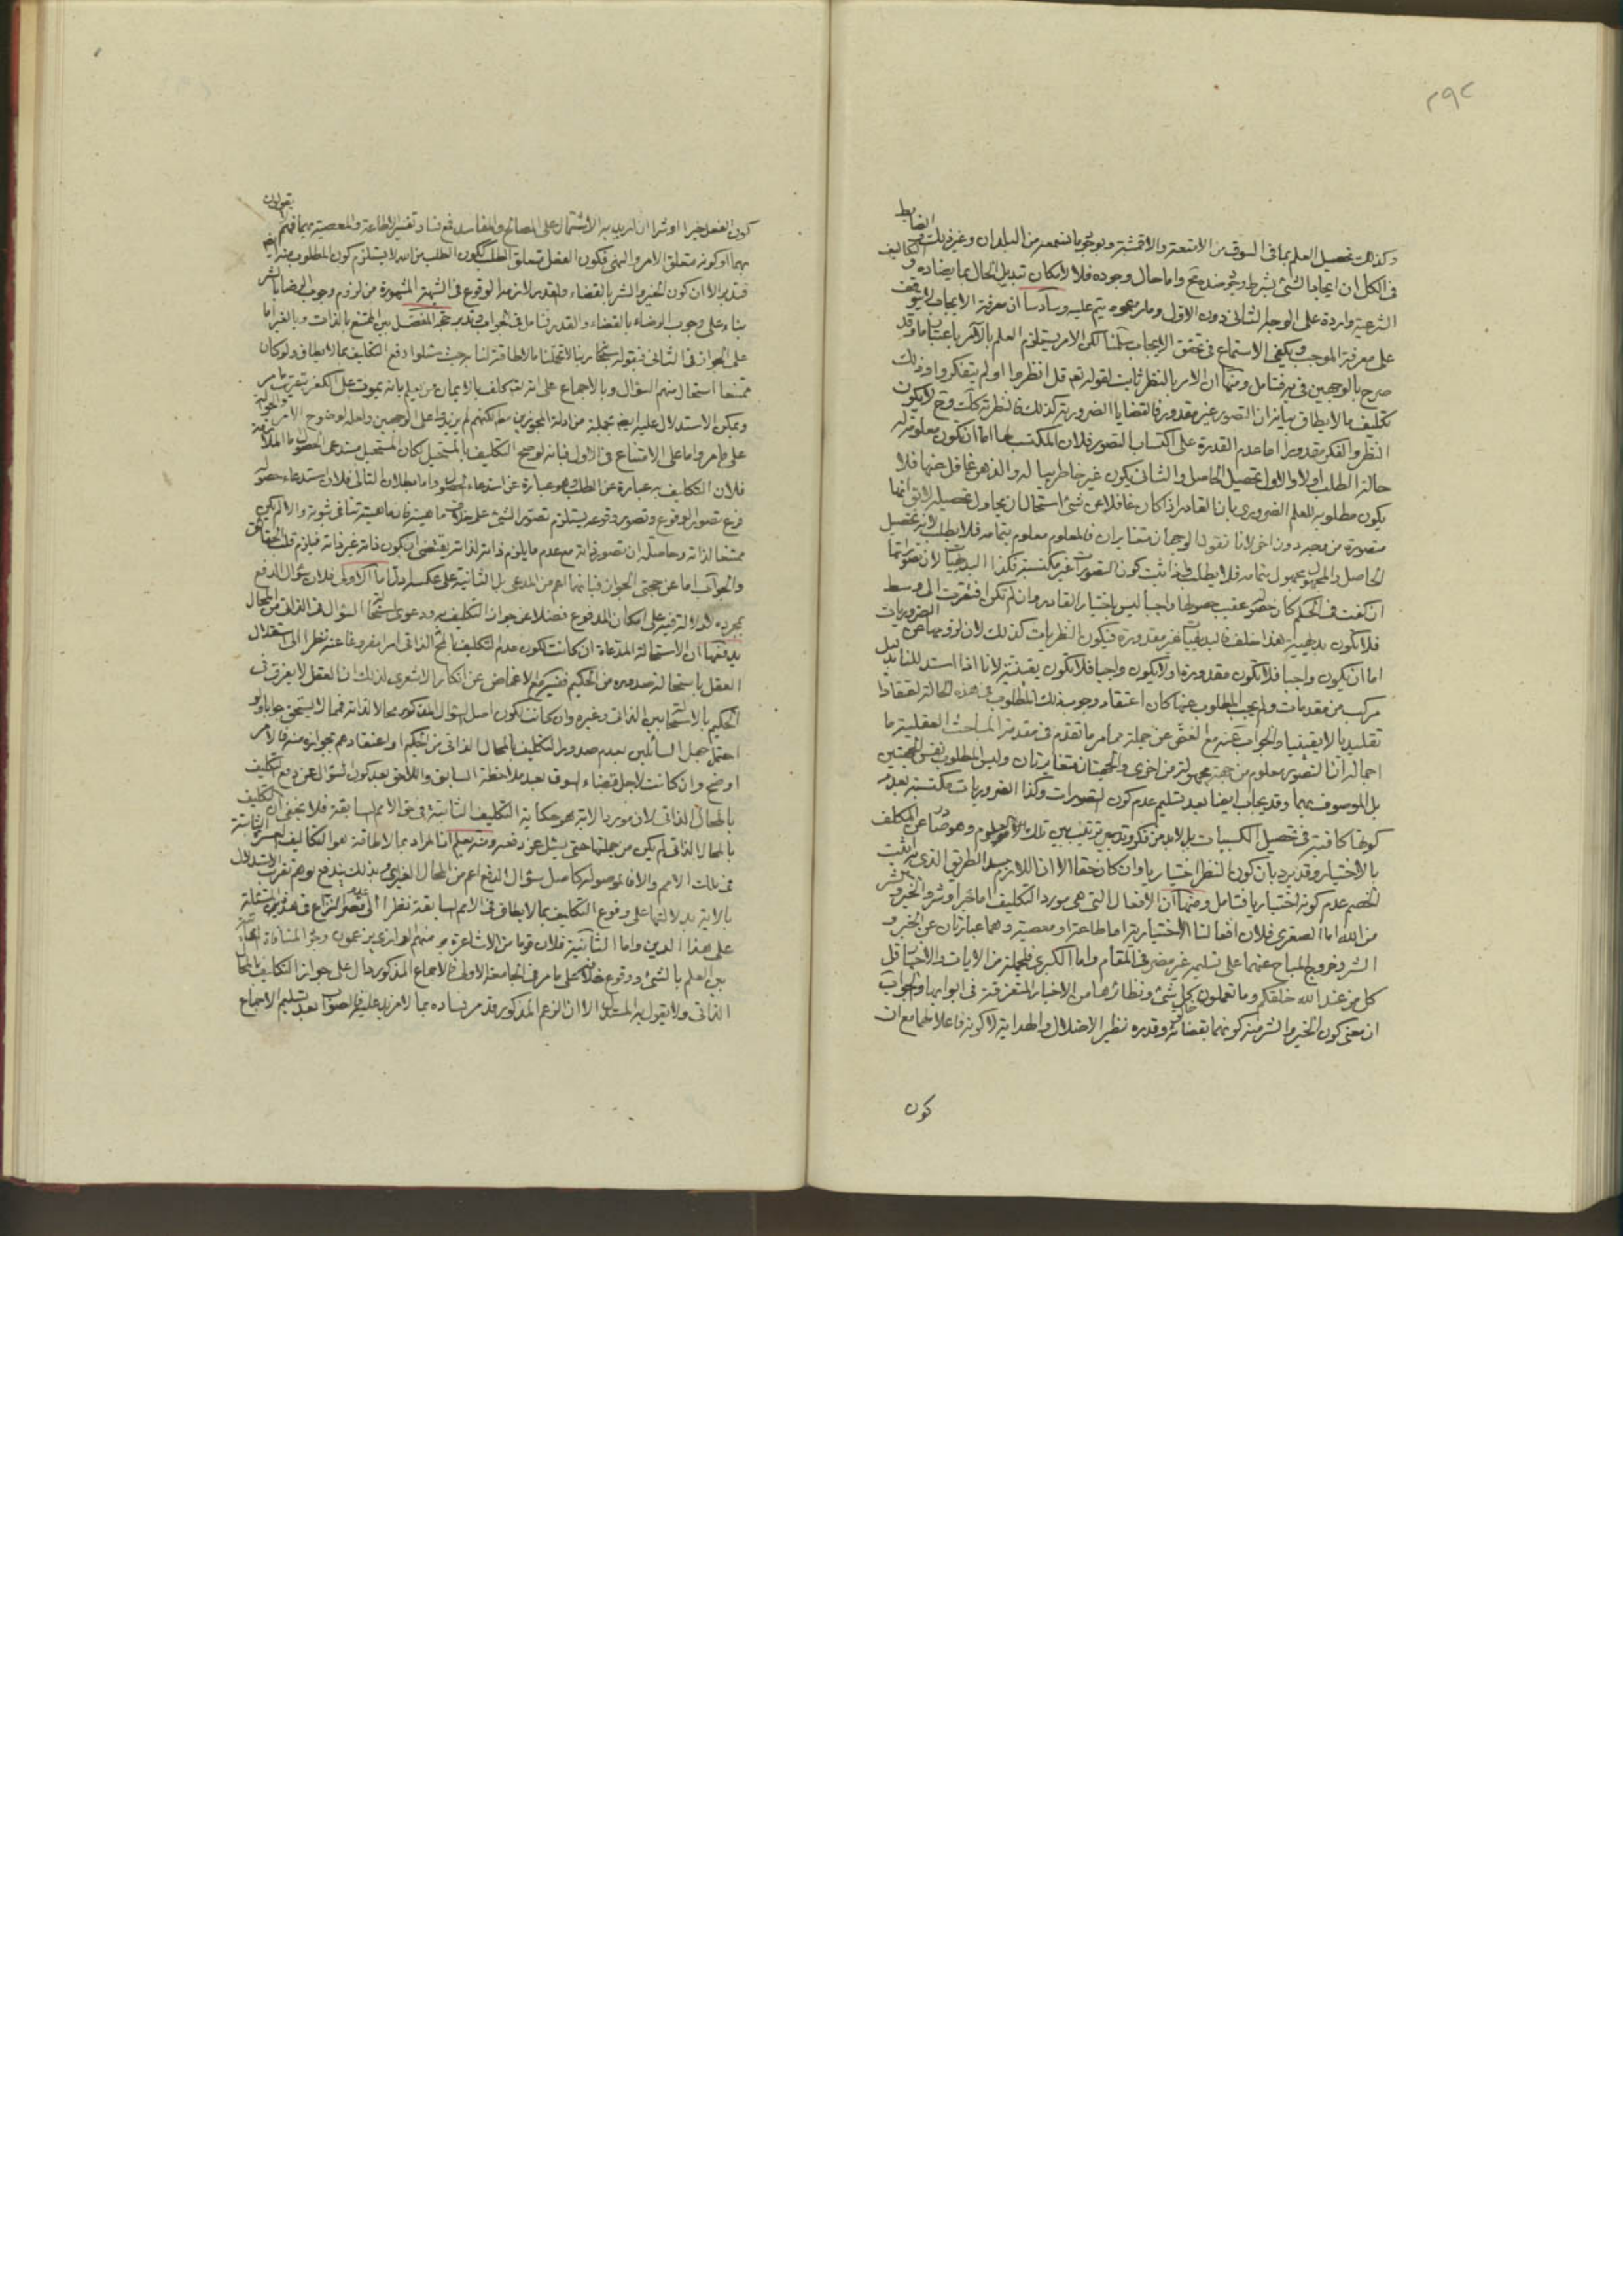 ٢٩٢
وكذلك تحصيل العلم بما في السوق من الامتعة والاقمشة وبوجود ما نسمعه من البلدان وغير ذلك الضابط
في الكل ان ايجاد الشئ بشرط وجود ضده مح واما حال وجوده فلا لامكان تبديل الحال بما يضاده و التكاليف
الشرعية واردة على الوجه الثاني دون الاول وسادسا ان معرفة الايجاب لا يتوقف
على معرفة الموجب ويكفي الاستماع في تحقق الايجاب سلمنا لكن الامر يستلزم العلم بالامر باعتبار ما وقد
صرح بالوجهين في فتامل ومنها ان الامر بالنظر ثابت لقوله تعم قل انظروا اولم يتفكروا وذلك
تكليف ما لا يطاق بيانه ان التصور غير مقدور فالقضايا الضرورية كذلك فالنظرية كك وح لا يكون
النظر والفكر مقدورا اما عدم القدرة على اكتساب التصور فلان المكتسب لها اما ان تكون معلومة له
حالة الطلب اولا والاول تحصيل الحاصل والثاني يكون غير خاطر بباله والذهن غافل عنها فلا
يكون مطلوبه للعلم الضروري بان القادر اذا كان غافلا عن شئ استحال ان يحاول تحصيله لا يق انها
متصورة من وجه دون اخر لانا نقول الوجهان متغايران فالمعلوم معلوم بتمامه فلا يطلب لانه تحصيل
الحاصل والمجهول مجهول بتمامه فلا يطلب فاذا ثبت كون التصورات غير مكتسبة فكذا البديهيات لان تصوراتها
ان كفت في الحكم كان حضوره عقيب حصولها واجبا ليس باختيار القادر وان لم تكن افتقرت الى وسط
فلا تكون بديهية هذا خلف فالبديهيات غير مقدورة فتكون النظريات كذلك لان لزومها عن الضروريات
اما ان يكون واجبا فلا تكون مقدورة اولا يكون واجبا فلا تكون يقينية لانا اذا استدللنا بدليل
مركب من مقدمات ولم يجب المطلوب عنها كان اعتقاد وجوب ذلك المطلوب في هذه الحالة اعتقادا
تقليديا لا يقينيا والجواب عنه مع الغض عن جملة مما مر ما تقدم في مقدمة المباحث العقلية ما
اجماله ان التصور معلوم من جهة مجهولة من اخرى والجهتان متغايرتان وليس المطلوب نفس الجهتين
بل الموصوف بهما وقد يجاب ايضا بعد تسليم عدم كون التصورات وكذا الضروريات مكتسبة بعدم
كونها كافية في تحصيل الكسبيات بل لابد من فكر وتدبير ترتيب بين تلك العلوم وهو صادر عن المكلف
بالاختيار وقد يرد بان كون النظر اختياريا وان كان حقا الا ان اللازم سد الطريق الذي به اثبت
الخصم عدم كونه اختياريا فتامل ومنها ان الافعال التي هي مورد التكليف اما خير او شر والخير والشر
من الله اما الصغرى فلان افعالنا الاختيارية اما طاعة او معصية وهما عبارتان عن الخير و
الشر وخروج المباح عنهما على تسليمه غير مضر في المقام واما الكبرى فلجملة من الايات والاخبار قل
كل من عند الله خلقكم وما تعملون خالق كل شئ ونظائرها من الاخبار المتفرقة في ابوابها والجواب
ان معنى كون الخير والشر منه كونهما بقضائه وقدره نظير الاضلال والهداية لا كونه فاعلا لهما مع ان
كون
كون الفعل خيرا او شرا ان اريد به الاشتمال على المصالح والمفاسد فمع فساد تفسير الطاعة والمعصية بهما فهم يقولون
بهما او كونه متعلق الامر والنهي فكون الفعل متعلق الطلب وكون الطلب من الله لا يستلزم كون المطلوب منه ايضا
فتدبر الا ان كون الخير والشر بالقضاء والقدر لازمه الوقوع في الشبهة المشهورة من لزوم وجوب الرضا بالشر
بناء على وجوب الرضاء بالقضاء والقدر فتامل في الجواب وتدبر حجة المفصل بين الممتنع بالذات وبالغير اما
على الجواز في الثاني فبقوله سبحانه ربنا لا تحملنا ما لا طاقة لنا به حيث سئلوا دفع التكليف بما لا يطاق ولو كان
ممتنعا استحال منهم السؤال وبالاجماع على انه تعالى كلف بالايمان من يعلم بانه يموت على الكفر بتقريب مر
ويمكن الاستدلال عليه ايضا بجملة من ادلة المجوزين مطلقا لكنهم لم يزيدوا على الوجهين ولعله لوضوح الامر والحوالة
على ما مر واما على الامتناع في الاول فبانه لو صح التكليف بالمستحيل لكان المستحيل مستدعى الحصول اما الملازمة
فلان التكليف به عبارة عن الطلب وهو عبارة عن استدعاء الحصول واما بطلان التالي فلان استدعاء حصوله
فرع تصور الوقوع وتصور وقوعه يستلزم تصور الشئ على خلاف ماهيته فان ماهيته تنافي ثبوته والا لم يكن
ممتنعا لذاته وحاصله ان تصور ذاته مع عدم ما يلزم ذاته لذاته يقتضي ان يكون ذاته غير ذاته فيلزم قلب الحقائق
والجواب اما عن حجتي الجواز فبانهما اعم من المدعى بل الثانية على عكسه ادل اما الاولى فلان سؤال الدفع
بمجرده لا دلالة فيه على امكان المدفوع فضلا عن جواز التكليف به ودعوى استحالة السؤال في الذاتي من المحال
يدفعها ان الاستحالة المدعاة ان كانت لكون عدم التكليف بالمح الذاتي امرا مفروغا عنه نظرا الى استقلال
العقل باستحالة صدوره من الحكيم ففيه مع الاغماض عن انكار الاشعري لذلك ان العقل لا يفرق في
الحكيم بالاستحالة بين الذاتي وغيره وان كانت لكون اصل السؤال المذكور محالا لذاته فمما لا يستحق جوابا ولو
احتمل جهل السائلين بعدم صدور التكليف بالمحال الذاتي من الحكيم او اعتقادهم بجوازه منه فالامر
اوضح وان كانت لاجل قضاء السوق بعد ملاحظة السابق واللاحق بعد كون السؤال عن دفع التكليف
بالمحال الذاتي لان مورد الاية هو حكاية التكليف الثابتة في حق الامم السابقة فلا يخفى ان التكليف
بالمحال الذاتي لم يكن من جملتها حتى يسئل عن دفعه ومنه يعلم ان المراد بما لا طاقة هو التكاليف العسرة الثابتة
في تلك الامم والا فالموصولة كاصل سؤال الدفع اعم من المحال الغيري وبذلك يندفع توهم تقريب الاستدلال
بالاية بدلالتها على وقوع التكليف بما لا يطاق في الامم السابقة نظرا الى عدم قصر النزاع في هذه المسئلة
على هذا الدين واما الثانية فلان قوما من الاشاعرة ومنهم الرازي يزعمون وجود المنافاة الذاتية
بين العلم بالشئ ووقوع خلافه على ما مر في الجامعة الاولى فالاجماع المذكور دال على جواز التكليف بالمحال
الذاتي ولا يقول به المستدل الا ان الزعم المذكور قد مر فساده بما لا مزيد عليه فالصواب بعد تسليم الاجماع